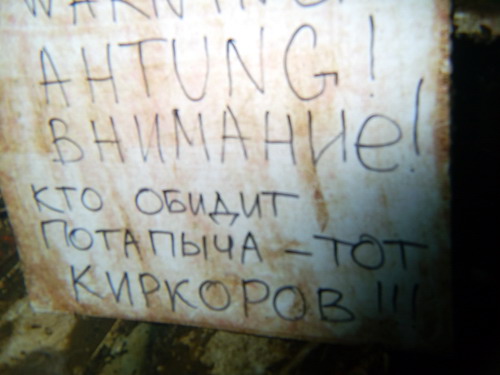 WARNING!
AHTUNG!
ВНИМАНИе!
КТО ОБИДИТ
ПОТАПЫЧА – ТОТ
КИРКОРОВ!!!